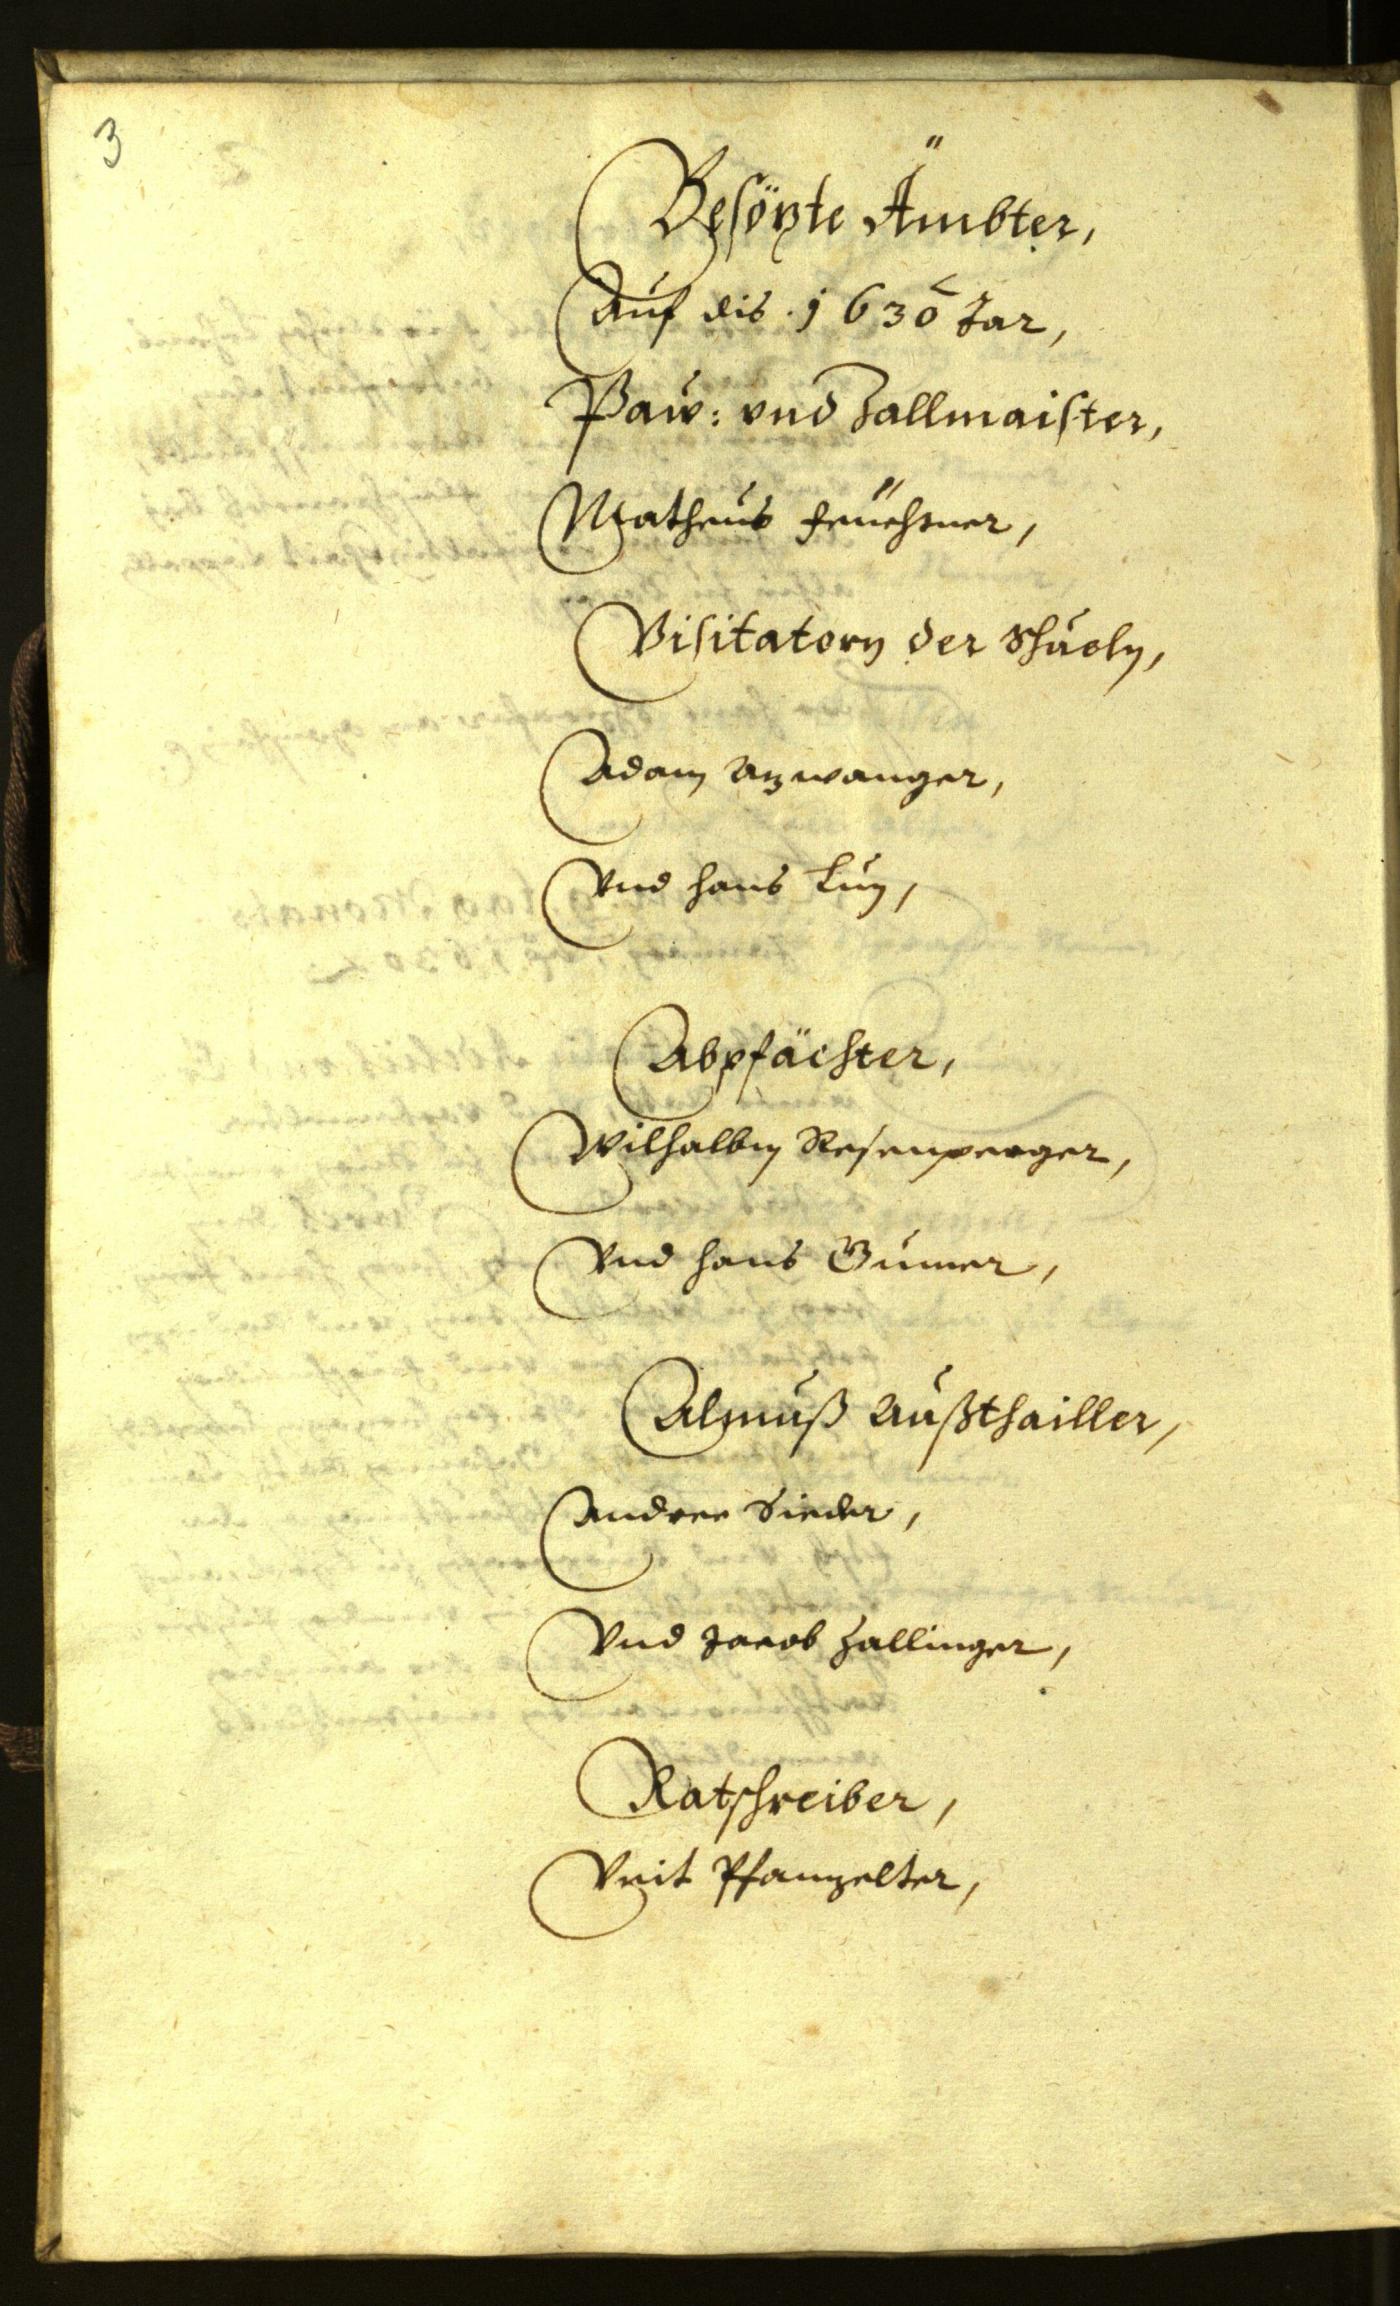 3
Besözte Ämbter,
Auf dis 1630 Jar,
Paw: vnd Zallmaister,
Matheus Feuchtner,
Visitatorn der Schueln,
Adam Anwanger,
Vnd Hans Lun,
Abpfächter,
Wilhalbm Resenperger,
Vnd Hans Gumer,
Almuß Außthailler,
Andree Sieder,
Vnd Jacob Zallinger,
Ratschreiber,
Veit Pfanzelter,